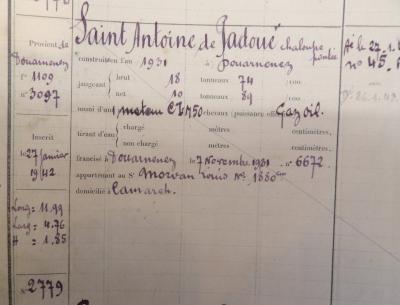 Saint Antoine de Padoue chaloupe pontée
Provient de
Douarnenez
f° 1109
n° 3097
construit en l'an 1931 à Douarnenez
jaugeant brut 18 tonneaux 74
net 10 tonneaux 89
muni d'un moteur CLM 50 chevaux (puissance eff) Gazoil.
tirant d'eau chargé mètres centimètres,
non chargé mètres centimètres,
francisé à Douarnenez le 7 Novembre 1931 n° 6672.
appartenant au Sr Morvan Louis
domicilié à Camaret.
Inscrit
le 27 janvier
1942
Long = 11.99
Larg = 4.76
H = 1.85
2779
n° 45.